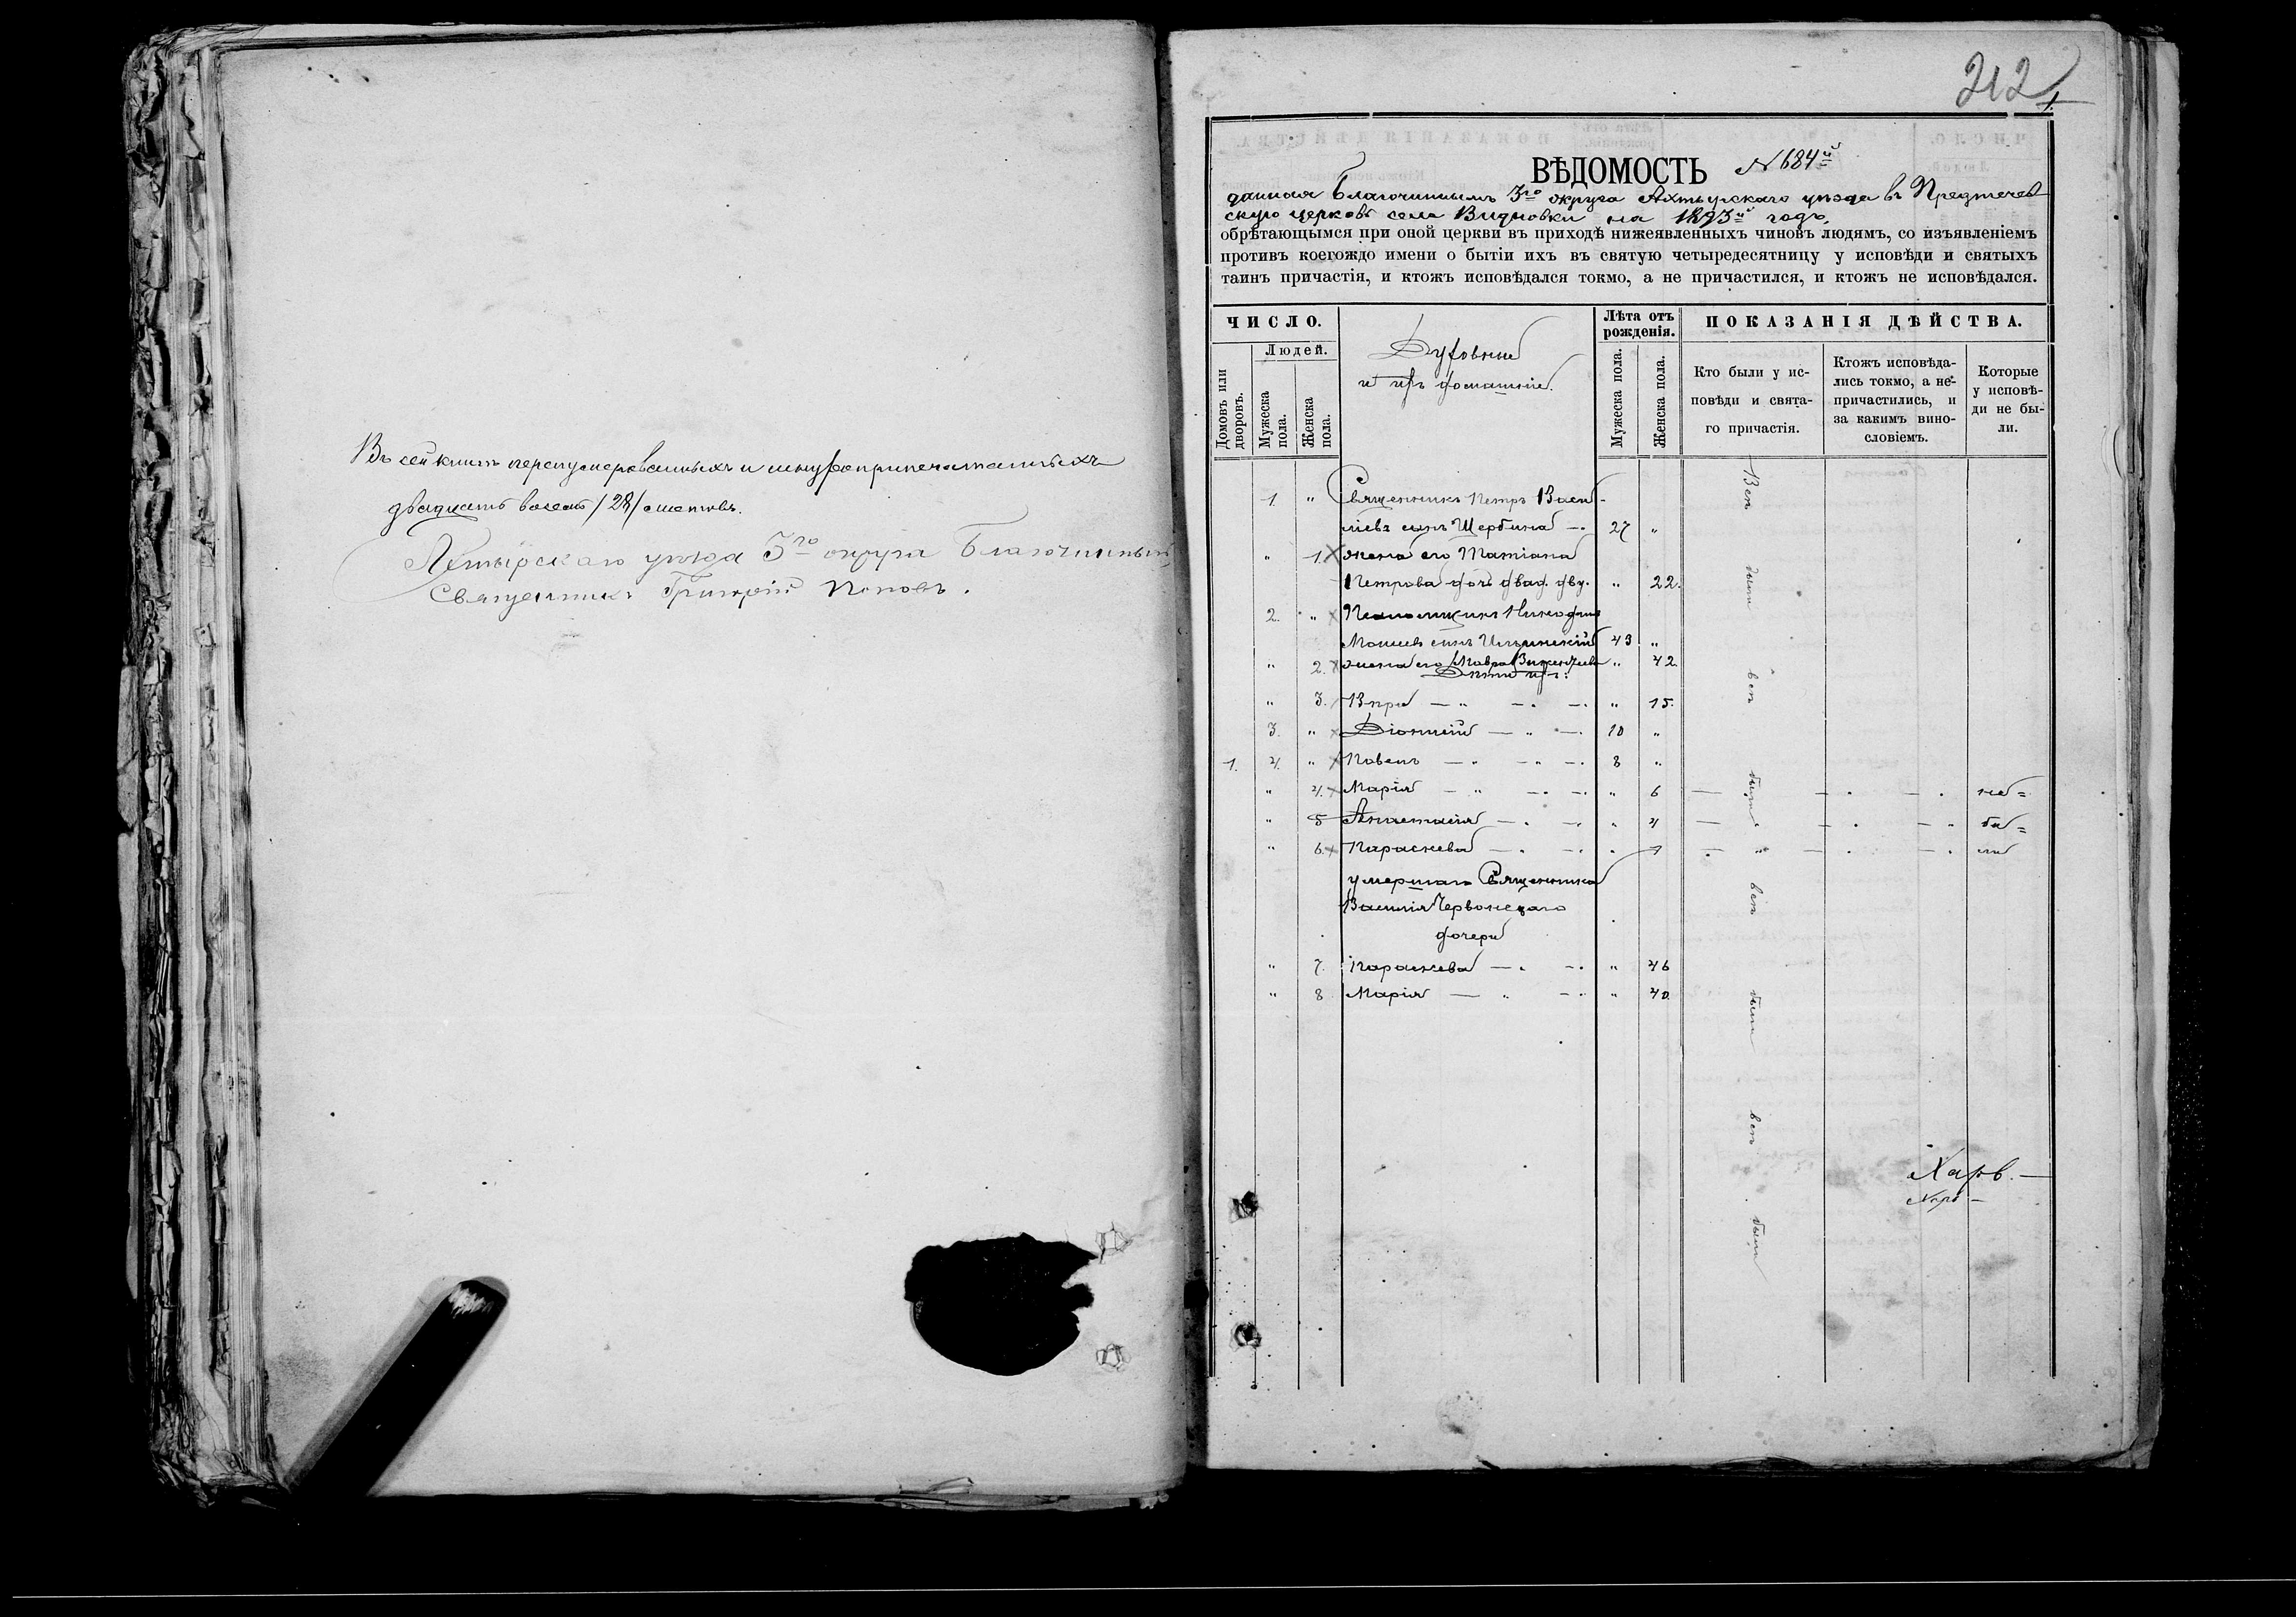 Въ сей книгѣ перенумерованныхъ и шнуроприпечатанныхъ
двадцать восемь /28/ листовъ.
Ахтырскаго уѣзда 3го округа Благочинный
Священникъ Григорій Поповъ.
212
1.
ВѢДОМОСТЬ N 684й
данная Благочиннымъ 3го округа Ахтырскаго уѣзда въ Предтечев
скую церковь села Видновки на 1893й годъ,
обрѣтающымся при оной церкви въ приходѣ нижеявленныхъ чиновъ людямъ, со изъявленіемъ
противъ коегождо имени о бытіи ихъ въ святую четыредесятницу у исповѣди и святыхъ
таинъ причастія, и ктожъ исповѣдался токмо, а не причастился, и ктожъ не исповѣдался.
ЧИСЛО.
Домовъ или дворовъ.
Людей.
Мужеска пола.
Женска пола.
Духовные
и ихъ домашніе.
Лѣта отъ
рожденія.
Мужеска пола.
Женска пола.
ПОКАЗАНІЯ ДѢЙСТВА.
Кто были у ис-
повѣди и свята-
го причастія.
Ктожъ исповѣда-
лись токмо, а не-
причастились, и
за какимъ вино-
словіемъ.
Которые
у исповѣ-
ди не бы-
ли.
1. " Священникъ Петръ Васи-
ліевъ сынъ Щербина 27 "
" 1. жена его Татіана
Петрова дочь " 22.
2. " Никодим
сынъ Ильинскій 43 "
" 2. жена его Мавра " 42.
Дѣти ихъ:
" 3. Вѣра " 15.
3. " Діонисій 10 "
1. 4. " Павелъ 8 "
" 4. Марія " 6 не=
" 5 Анастасія " 4 бы=
" 6. Параскева " 1 ли
умершаго Священника
Василія Червонецкаго
дочери
" 7. Параскева " 46
" 8 Марія " 40
Всѣ были всѣ были всѣ были всѣ были
Харв.